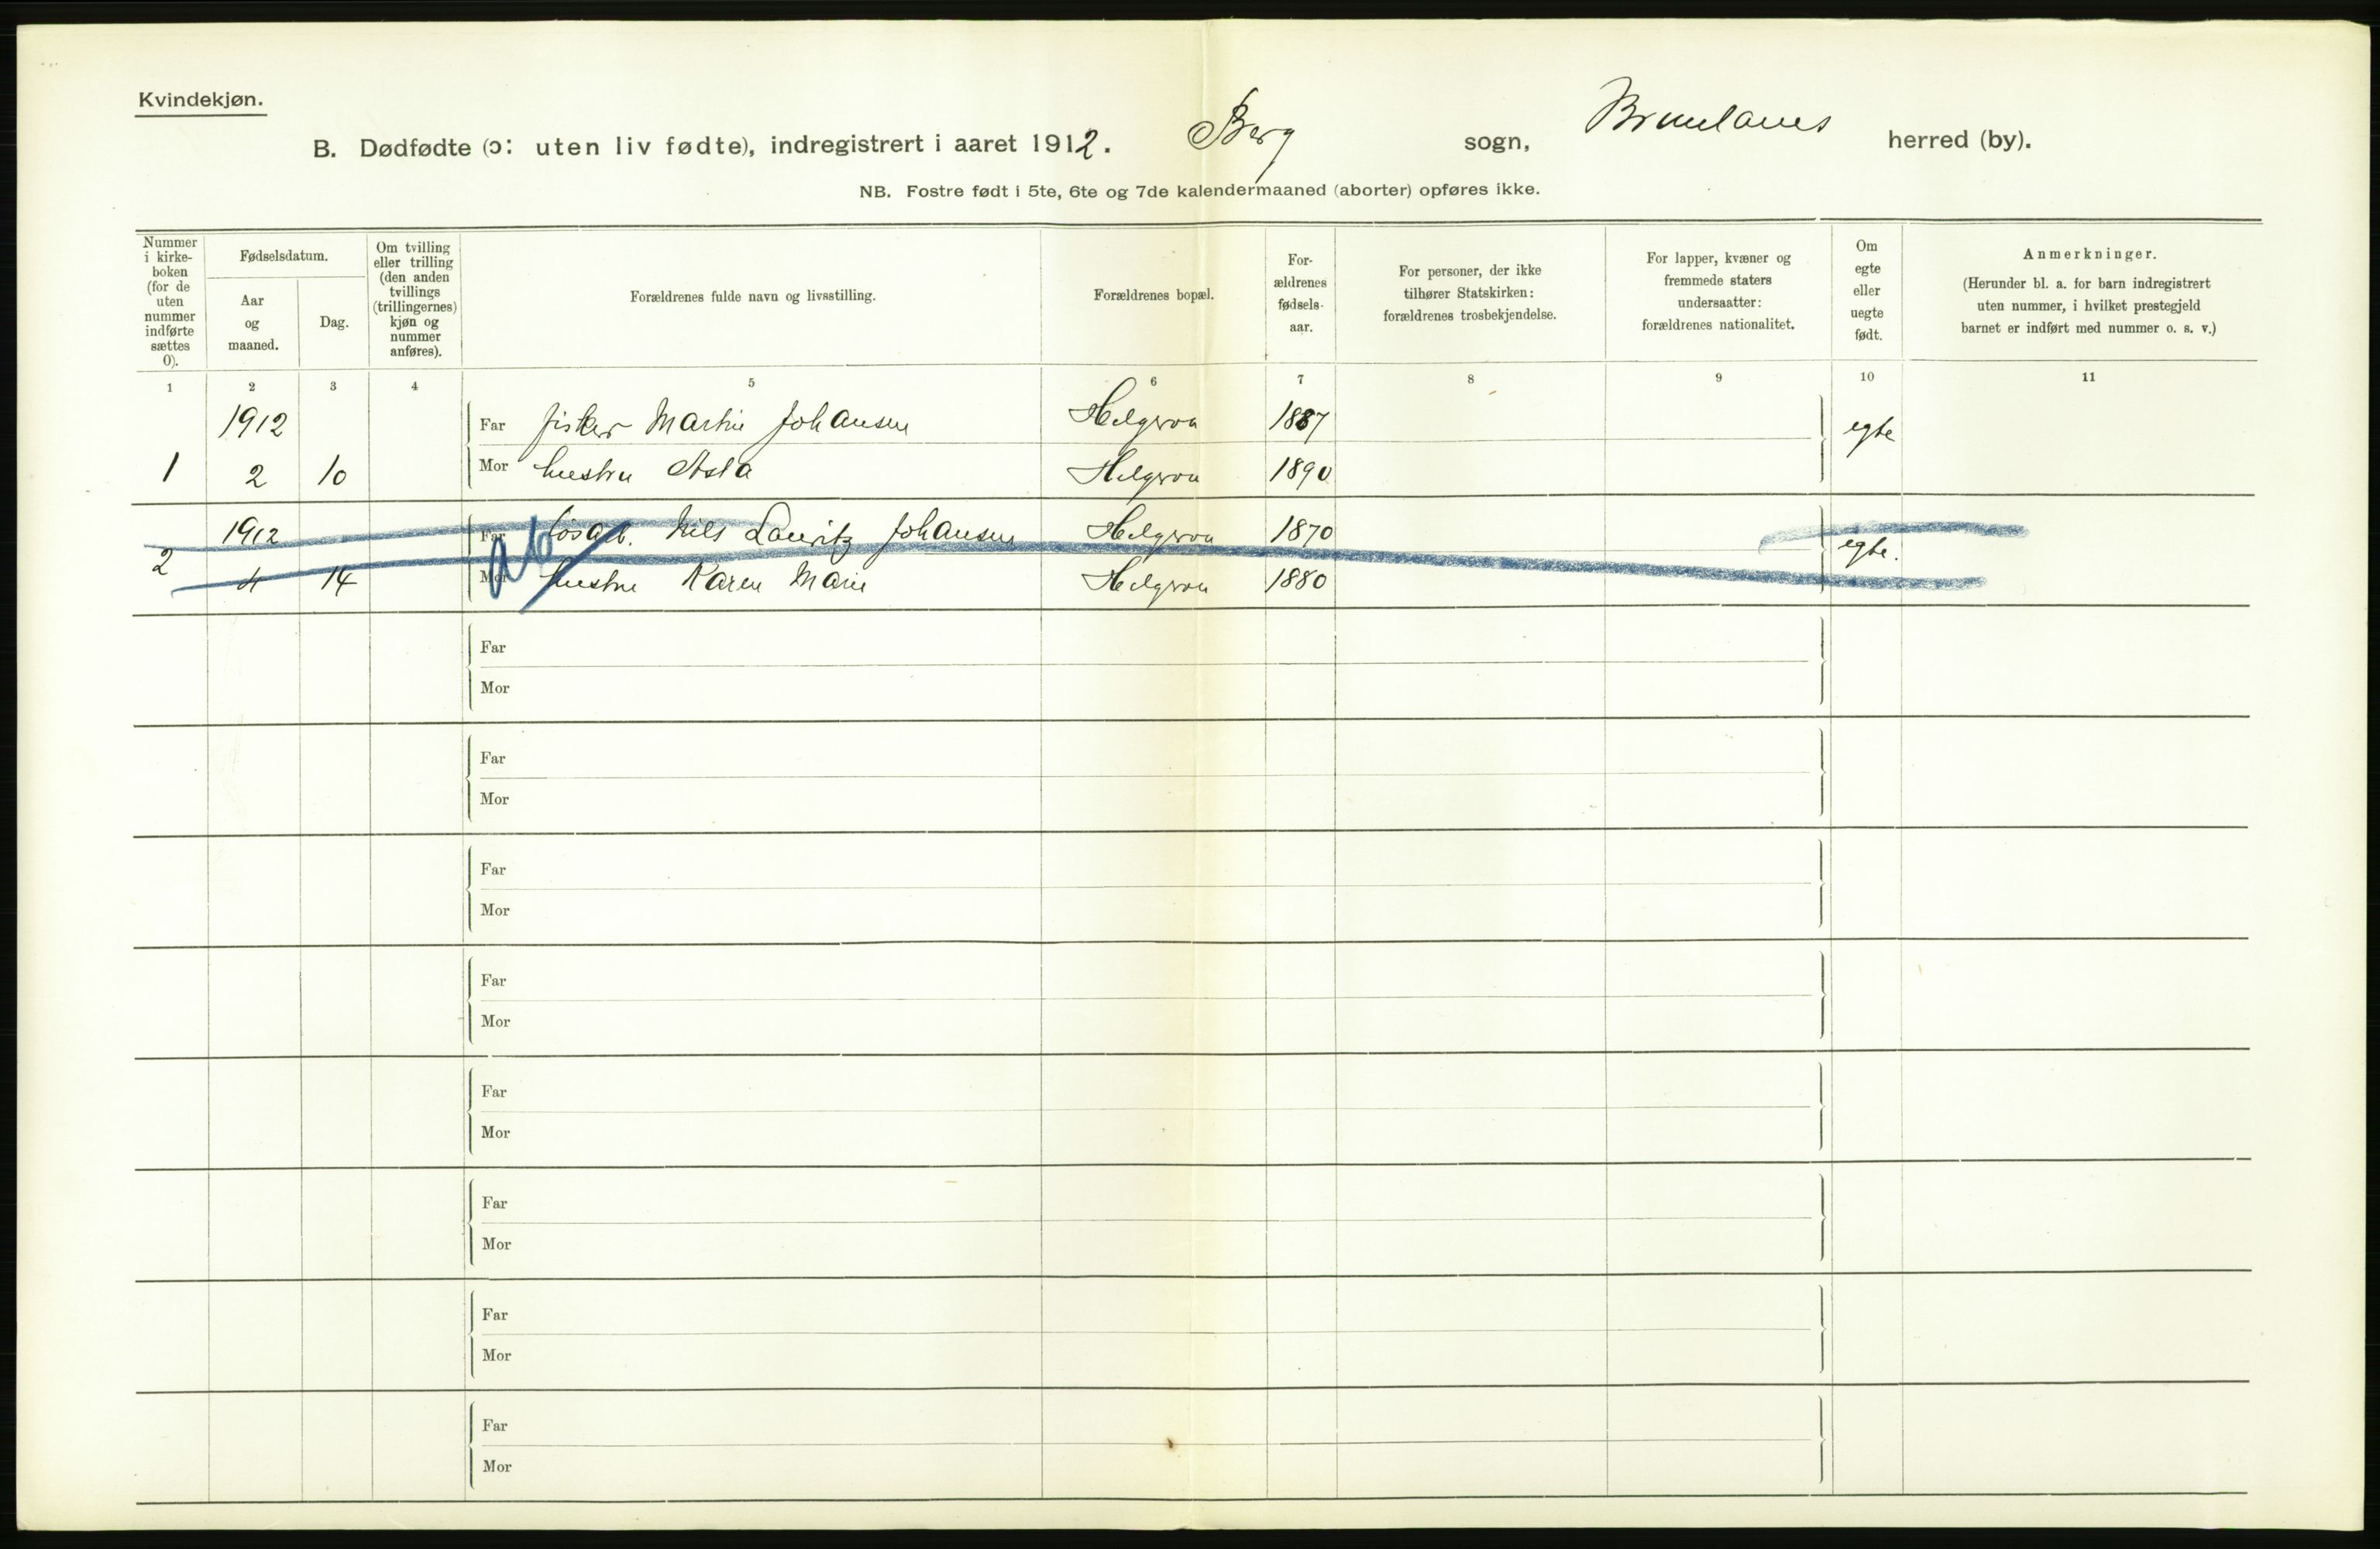 Kvindekjøn.
B. Dødfødte (ɔ: uten liv fødte), indregistrert i aaret 1912. Berg sogn, Brunlanes herred (by).
NB. Fostre født i 5te, 6te og 7de kalendermaaned (aborter) opføres ikke.
Nummer i kirke- boken (for de uten nummer indførte sættes 0).
Fødselsdatum.
Aar og maaned.
Dag.
Om tvilling eller trilling (den anden tvillings (trillingernes) kjøn og nummer anføres).
Forældrenes fulde navn og livsstilling.
Forældrenes bopæl.
For- ældrenes fødsels- aar.
For personer, der ikke tilhører Statskirken: forældrenes trosbekjendelse.
For lapper, kvæner og fremmede staters undersaatter: forældrenes nationalitet.
Om egte eller uegte født.
Anmerkninger.
(Herunder bl. a. for barn indregistrert uten nummer, i hvilket prestegjeld barnet er indført med nummer o. s. v.)
1 2 3 4 5 6 7 8 9 10 11
1912 Far fisker Martin Johansen Helgeroa 1887 egte
1 2 10 Mor hustru Asta Helgeroa 1890
1912 Far løsarb. Nils Lauritz Johansen Helgeroa 1870 egte.
2 4 14 Mor hustru Karen Marie Helgeroa 1880
ab
Far
Mor
Far
Mor
Far
Mor
Far
Mor
Far
Mor
Far
Mor
Far
Mor
Far
Mor